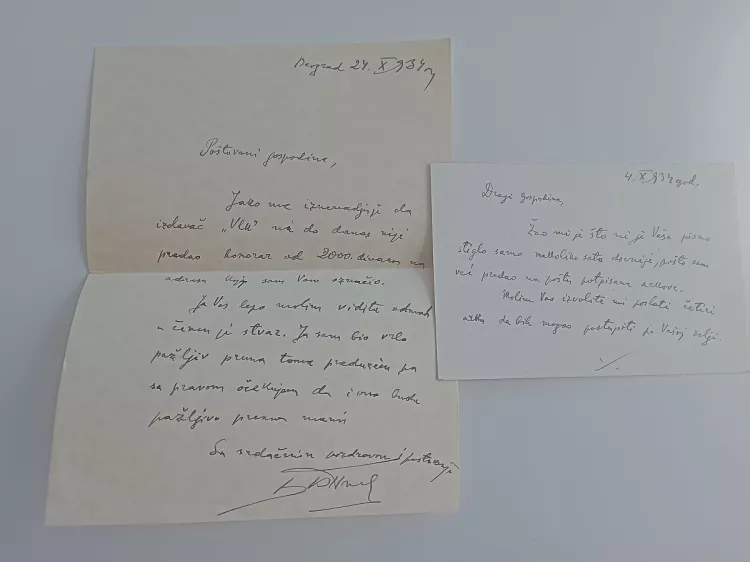 Beograd 24. X 934 g
Poštovani gospodine,
Jako me iznenadjuje da
izdavač „VUK" ni do danas nije
predao honorar od 2000. dinara na
adresu koju sam Vam označio.
Ja Vas lepo molim vidite odmah
u čemu je stvar. Ja sam bio vrlo
pažljiv prema tome preduzeću pa
sa pravom očekujem da i ono bude
pažljivo prema meni
Sa srdačnim pozdravom i poštovanje
4. X 934 god.
Dragi gospodine,
Žao mi je što mi je Vaše pismo
stiglo samo nekoliko sata docnije, pošto sam
već predao na poštu potpisane arkove.
Molim Vas izvolite mi poslati četiri
arka da bih mogao postupiti po Vašoj želji.
./.